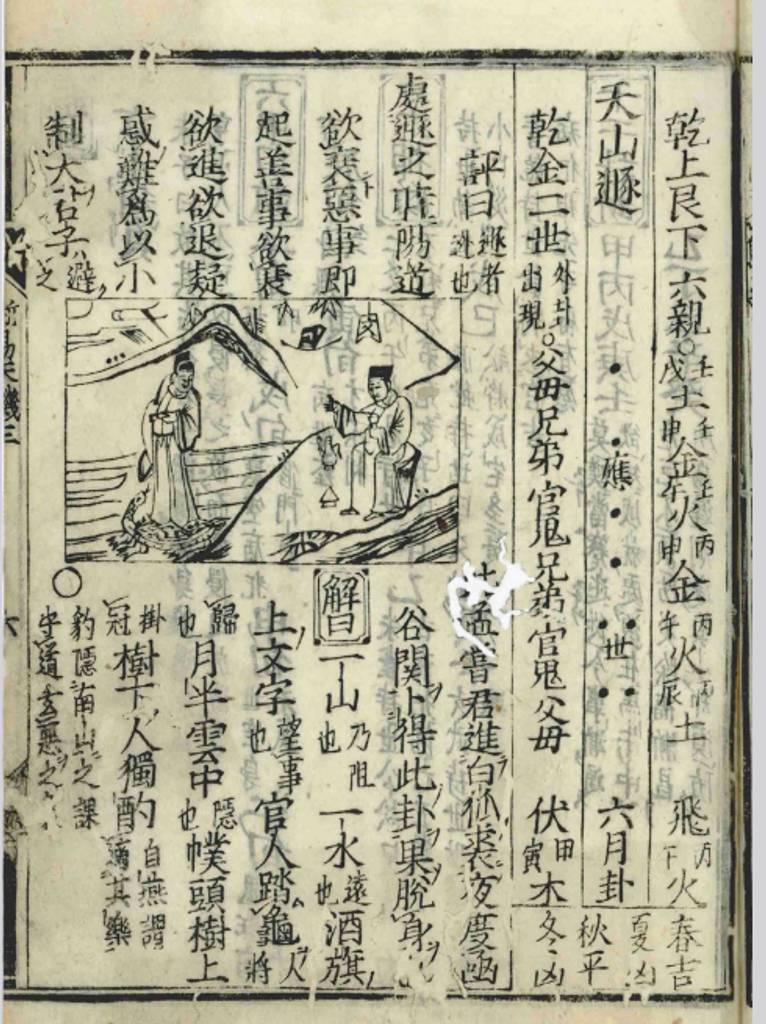 乾上艮下六親○壬戌土壬申金壬午火丙申金丙午火丙辰土 飛丙下火
春吉
夏凶
秋平
冬凶
天山遯 應 世 六月卦
乾金二世外卦出現○父母兄弟官鬼兄弟官鬼父母 伏甲寅木
評曰遯者逃也
處遯之時陽道
欲衰惡事即
起善事欲衰
欲進欲退疑
惑難為以小
制大君子避之
孟嘗君進白狐裘夜度函
谷關卜得此卦果脫身
解曰一山乃阻也一水遠也酒旗
上文字望事也官人踏龜人將
歸也月半雲中隱也幞頭樹上
掛冠樹下人獨酌自燕謂
其樂
○豹隱南山之課
守道